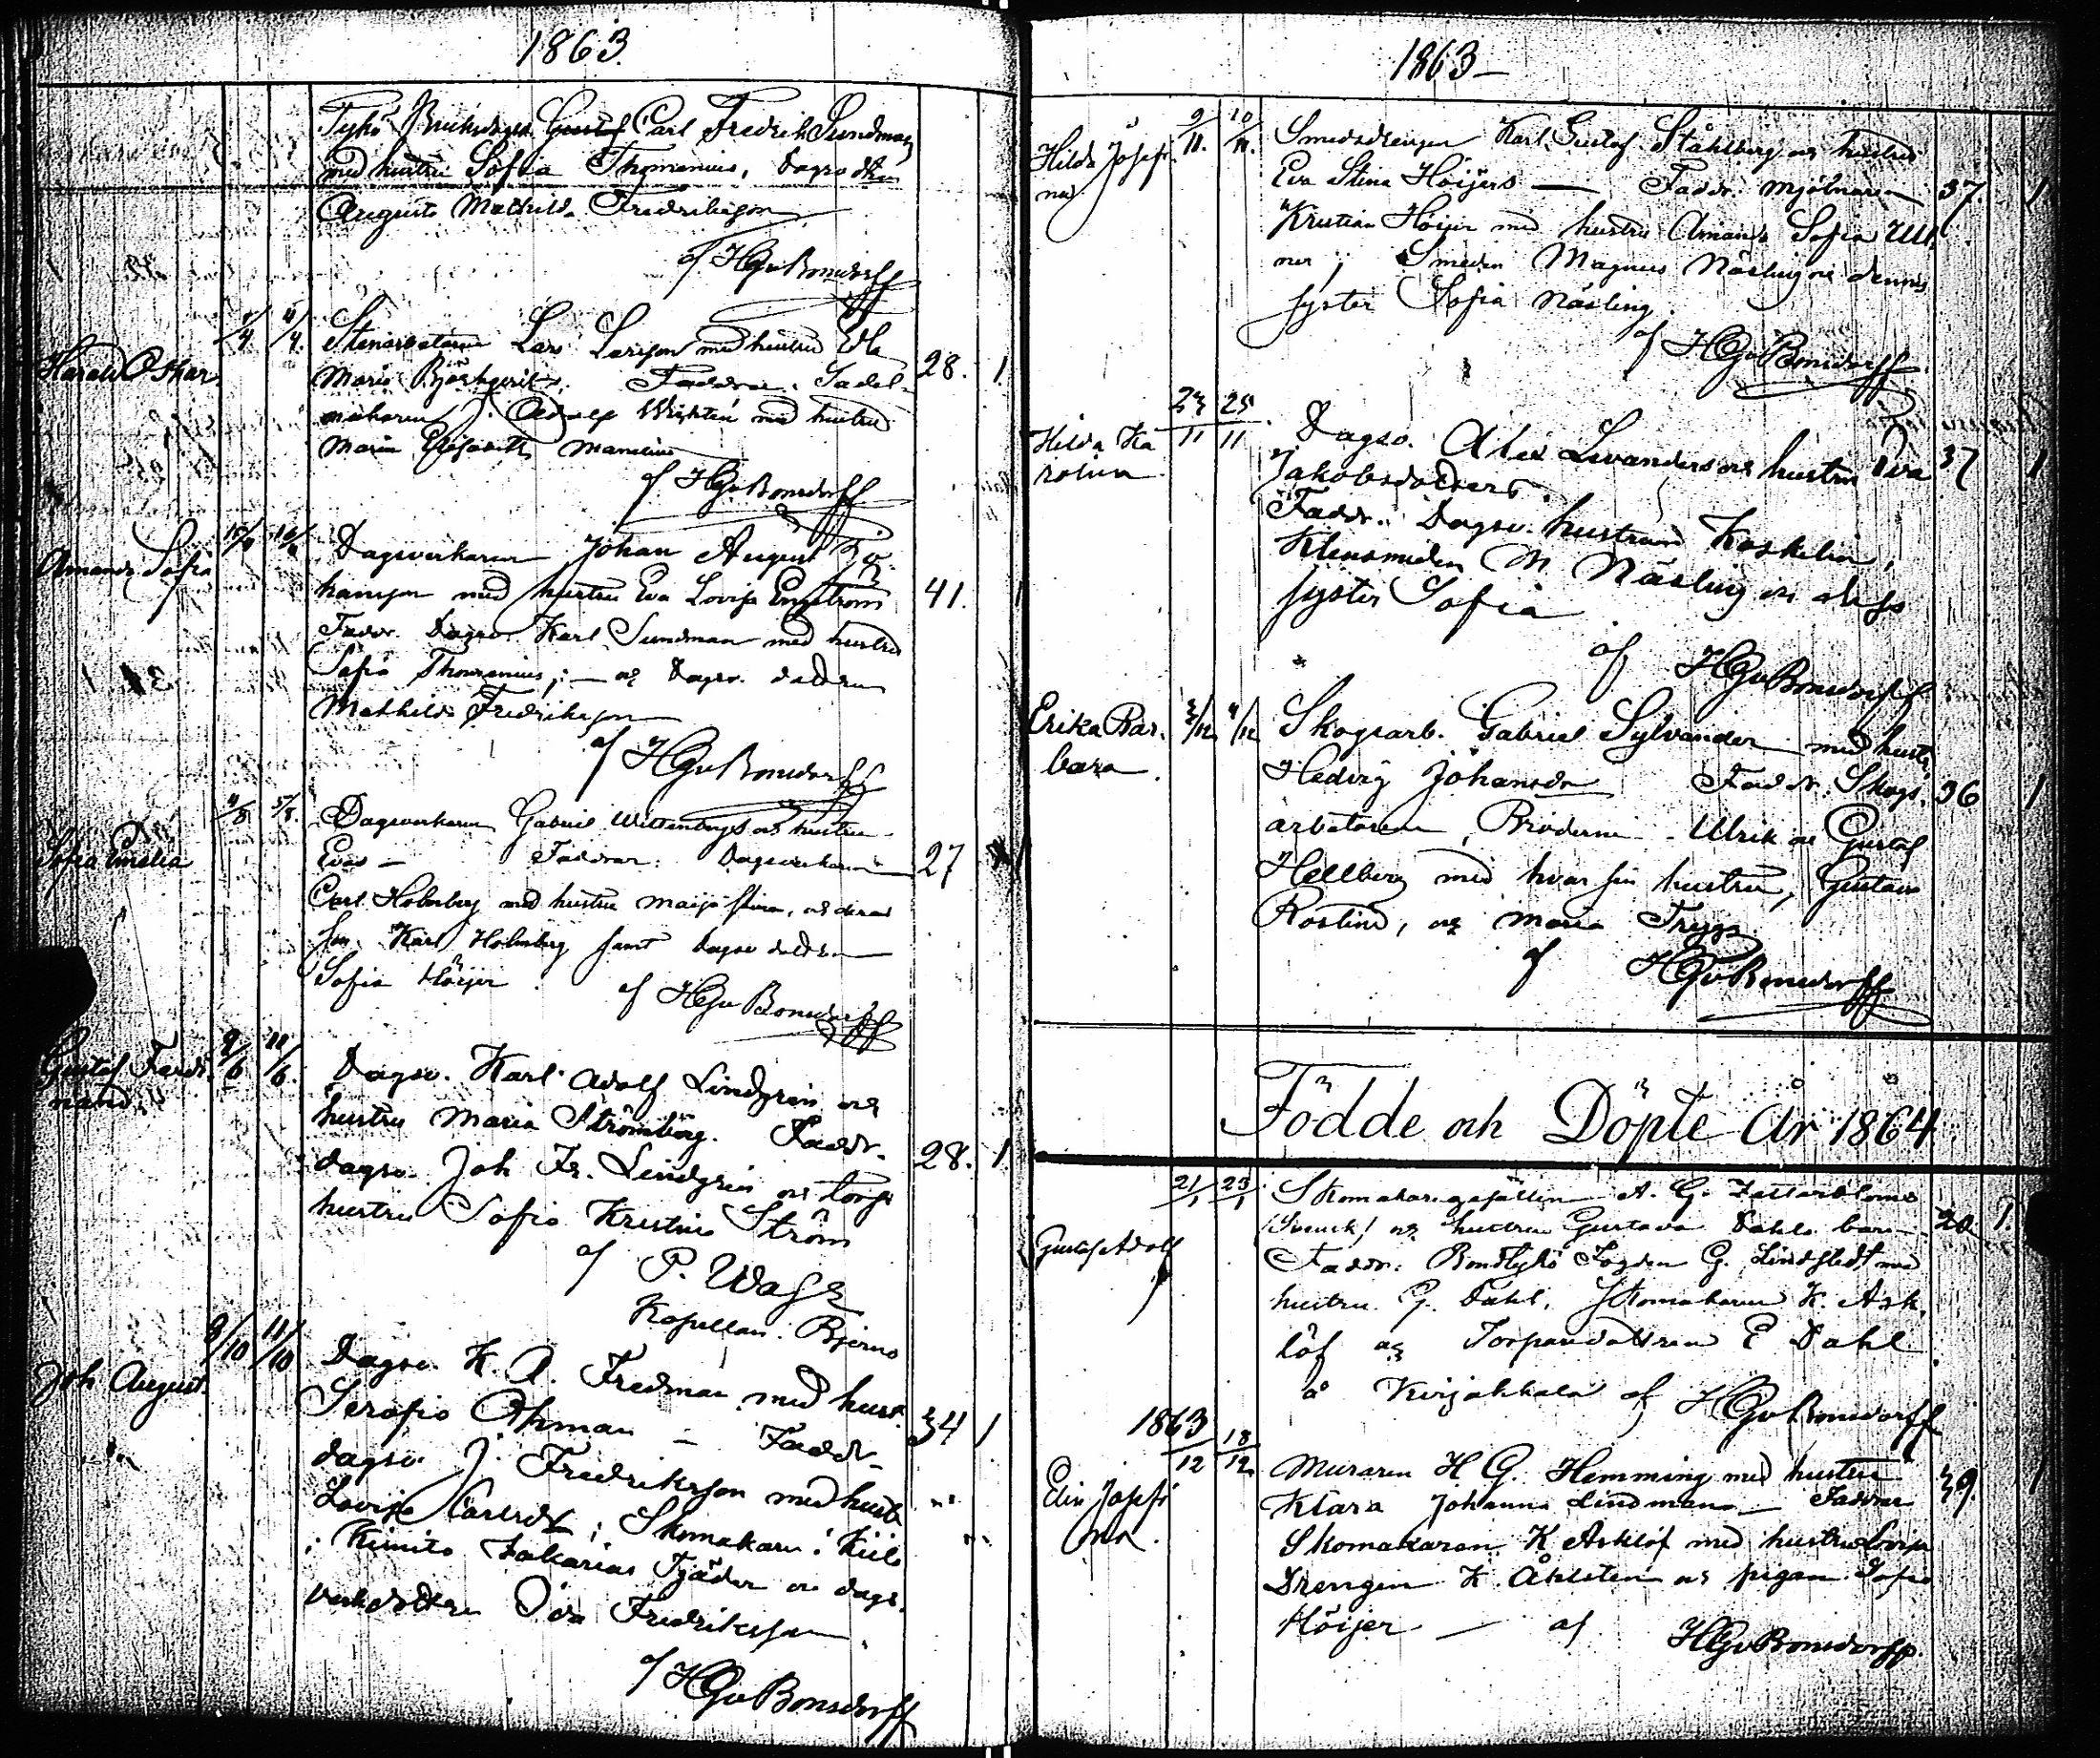 1863.
Tykö Bruksdagsk. Gustaf Carl Fredrik Sundman
med hustru Sofia Thomenius, Dagsv dttn
Augusta Mathilda Fredriksson
af HGvBonsdorff
Harald Oskar. /4 /4. Stenarbetaren Lars Larsson med hustru Eda
Maria Björkqvist. Faddrar. Sadel- 28. 1
makaren J. Adolf med hustru
Maria Elisabeth
af HGvBonsdorff
Amanda Sofia Dagsverkaren Johan August Jo
hansson med hustru Eva Lovisa Engström 41. 1
Faddr. Dagsv. Karl Sundman med hustru
Sofia Thomenius; — och Dagsv. dottren
Mathilda Fredriksson
af HGvBonsdorff
Sofia Emelia 4/8 5/8. Dagsverkaren Gabriel Wittenbergs och hustru
Evas — Faddrar. Dagsverkaren 27 1
Carl Holmberg med hustru Maija Stina, och deras
son Karl Holmberg samt dagsv dottren
Sofia Höijer. af HGvBonsdorff
Gustaf Ferdi- 9/6 11/6. Dagsv. Karl Adolf Lindgren och
nand. hustru Maria Strömberg. Faddr. 28. 1
dagsv. Joh Fr. Lindgren och torp
hustru Sofia Kristina Ström
af P.
Kapellan i Bjerno
Joh August. 8/10 11/10 Dagsv. K. A. Fredman med hust.
Serafia Öhman — Faddr. 34 1
dagsv. J. Fredriksson med hustr
Lovisa Carlsdr; Skomakare i
i Kimito Zakarias Tjäder och dags.
verkdottren Ida Fredriksson.
af HGvBonsdorff
1863—
Hilda Josefi- 9/11. 10/11. Smedsdrengen Karl Gustaf Ståhlberg och hustru
na Eva Stina Höijers — Faddr. Mjölnaren 37. 1
Kristian Höijer med hustru Amanda Sofia
Smeden Magnus Näsling och dennes
syster Sofia Näsling.
af HGvBonsdorff
Hilda Ka 23/11 25/11. Dagsv. Alex Levanders och hustru Eva 37 1
rolina Jakobsdotters.
Faddr. Dagsv. hustrun Koskelin,
Klensmeden M Näsling och dess
syster Sofia
af HGvBonsdorff
Erika Bar- 3/12 4/12 Skogsarb. Gabriel Sylvander med hustr.
bara. Hedvig Johansdr Faddr. Skogs. 36 1
arbetaren, Bröderne Ulrik och Gustaf
Hellberg med hvar sin hustru, Gustava
Roslind, och Maria Trygg
af HGvBonsdorff
Födde och Döpte År 1864
21/1 23/1 Skomakaregesällen A. G. Zetterbloms
Gustaf Adolf och hustru Gustava Dahls barn. 20. 1.
Faddr. Fogden G. Lindstedt med
hustru G. Dahl, Skomakaren K. Ask.
löf och Torparedottren E Dahl
å Kirjakkala af HGvBonsdorff
1863
/12 18/12
Elin Josefi Muraren H G. Hemming med hustru
na. Klara Johanna Lindman — Faddrar 39. 1
Skomakaren K Asklöf med hustru Lovisa
Drengen K. Åhlsten och pigan Sofia
Höijer — af HGvBonsdorff.